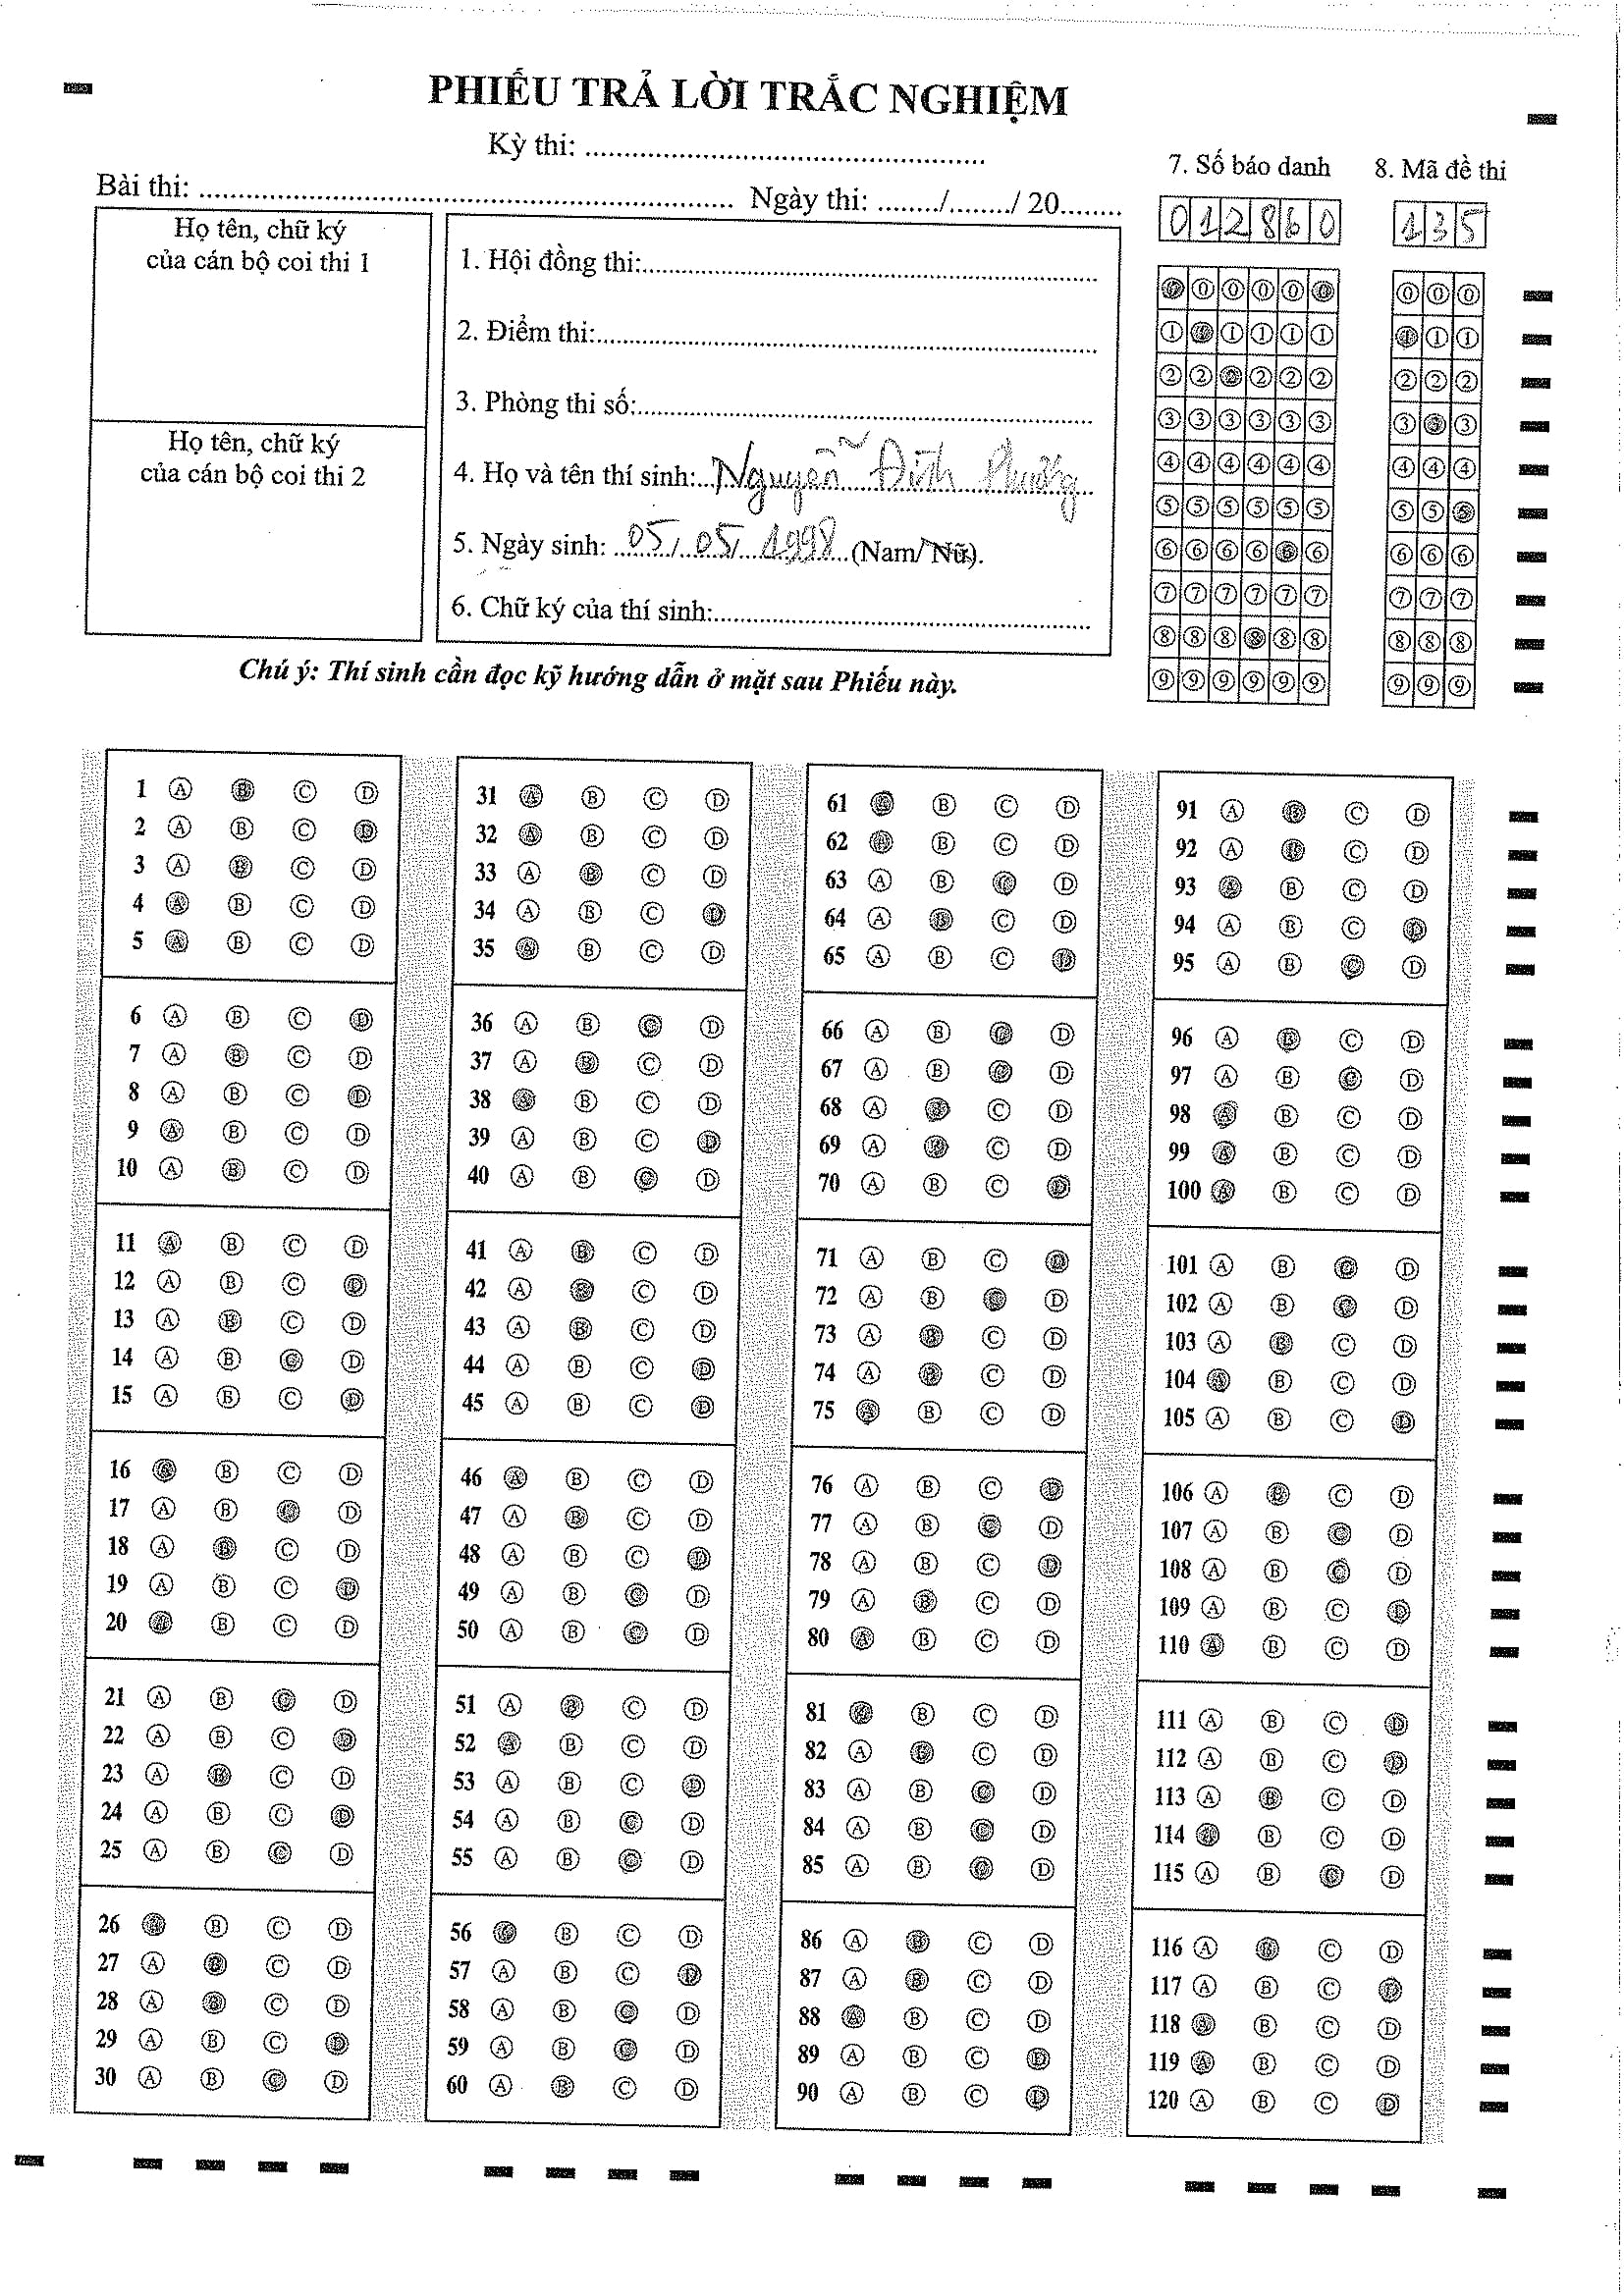 PHIẾU TRẢ LỜI TRẮC NGHIỆM
Kỳ thi: ....................................................
7. Số báo danh
8. Mã đề thi
Bài thi: ...................................................................... Ngày thi: ......../......../ 20........
012860
135
Họ tên, chữ ký
của cán bộ coi thi 1
Họ tên, chữ ký
của cán bộ coi thi 2
1. Hội đồng thi:............................................................
2. Điểm thi:..................................................................
3. Phòng thi số:............................................................
4. Họ và tên thí sinh: Nguyễn Đình Phương
5. Ngày sinh: 05/05/1998 (Nam/ Nữ).
6. Chữ ký của thí sinh:..................................................
0 0 0 0 0 0 0 0 0
1 1 1 1 1 1 1 1 1
2 2 2 2 2 2 2 2 2
3 3 3 3 3 3 3 3 3
4 4 4 4 4 4 4 4 4
5 5 5 5 5 5 5 5 5
6 6 6 6 6 6 6 6 6
7 7 7 7 7 7 7 7 7
8 8 8 8 8 8 8 8 8
9 9 9 9 9 9 9 9 9
Chú ý: Thí sinh cần đọc kỹ hướng dẫn ở mặt sau Phiếu này.
1 A B C D
2 A B C D
3 A B C D
4 A B C D
5 A B C D
6 A B C D
7 A B C D
8 A B C D
9 A B C D
10 A B C D
11 A B C D
12 A B C D
13 A B C D
14 A B C D
15 A B C D
16 A B C D
17 A B C D
18 A B C D
19 A B C D
20 A B C D
21 A B C D
22 A B C D
23 A B C D
24 A B C D
25 A B C D
26 A B C D
27 A B C D
28 A B C D
29 A B C D
30 A B C D
31 A B C D
32 A B C D
33 A B C D
34 A B C D
35 A B C D
36 A B C D
37 A B C D
38 A B C D
39 A B C D
40 A B C D
41 A B C D
42 A B C D
43 A B C D
44 A B C D
45 A B C D
46 A B C D
47 A B C D
48 A B C D
49 A B C D
50 A B C D
51 A B C D
52 A B C D
53 A B C D
54 A B C D
55 A B C D
56 A B C D
57 A B C D
58 A B C D
59 A B C D
60 A B C D
61 A B C D
62 A B C D
63 A B C D
64 A B C D
65 A B C D
66 A B C D
67 A B C D
68 A B C D
69 A B C D
70 A B C D
71 A B C D
72 A B C D
73 A B C D
74 A B C D
75 A B C D
76 A B C D
77 A B C D
78 A B C D
79 A B C D
80 A B C D
81 A B C D
82 A B C D
83 A B C D
84 A B C D
85 A B C D
86 A B C D
87 A B C D
88 A B C D
89 A B C D
90 A B C D
91 A B C D
92 A B C D
93 A B C D
94 A B C D
95 A B C D
96 A B C D
97 A B C D
98 A B C D
99 A B C D
100 A B C D
101 A B C D
102 A B C D
103 A B C D
104 A B C D
105 A B C D
106 A B C D
107 A B C D
108 A B C D
109 A B C D
110 A B C D
111 A B C D
112 A B C D
113 A B C D
114 A B C D
115 A B C D
116 A B C D
117 A B C D
118 A B C D
119 A B C D
120 A B C D